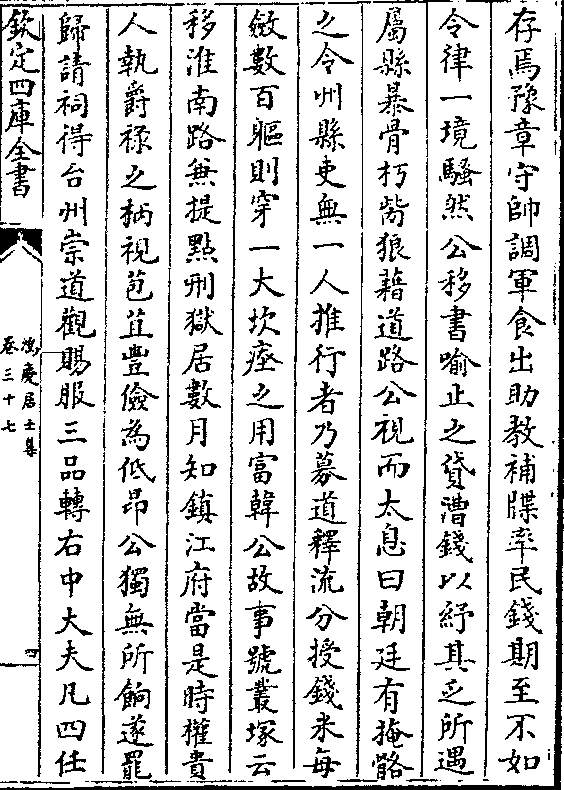 存焉豫章守帥調軍食出助教補牒率民錢期至不如
令律一境騷然公移書喻止之貸漕錢以紓其乏所遇
屬縣暴骨朽胔狼藉道路公視而太息曰朝廷有掩骼
之令州縣吏無一人推行者乃募道釋流分授錢米每
斂數百軀則穿一大坎瘞之用富韓公故事號叢塚云
移淮南路無提點刑獄居數月知鎮江府當是時權貴
人執爵祿之柄視苞苴豐儉為低昂公獨無所餉遂罷
歸請祠得台州崇道觀賜服三品轉右中大夫凡四任
欽定四庫全書
鴻慶居士集
卷三十七
四